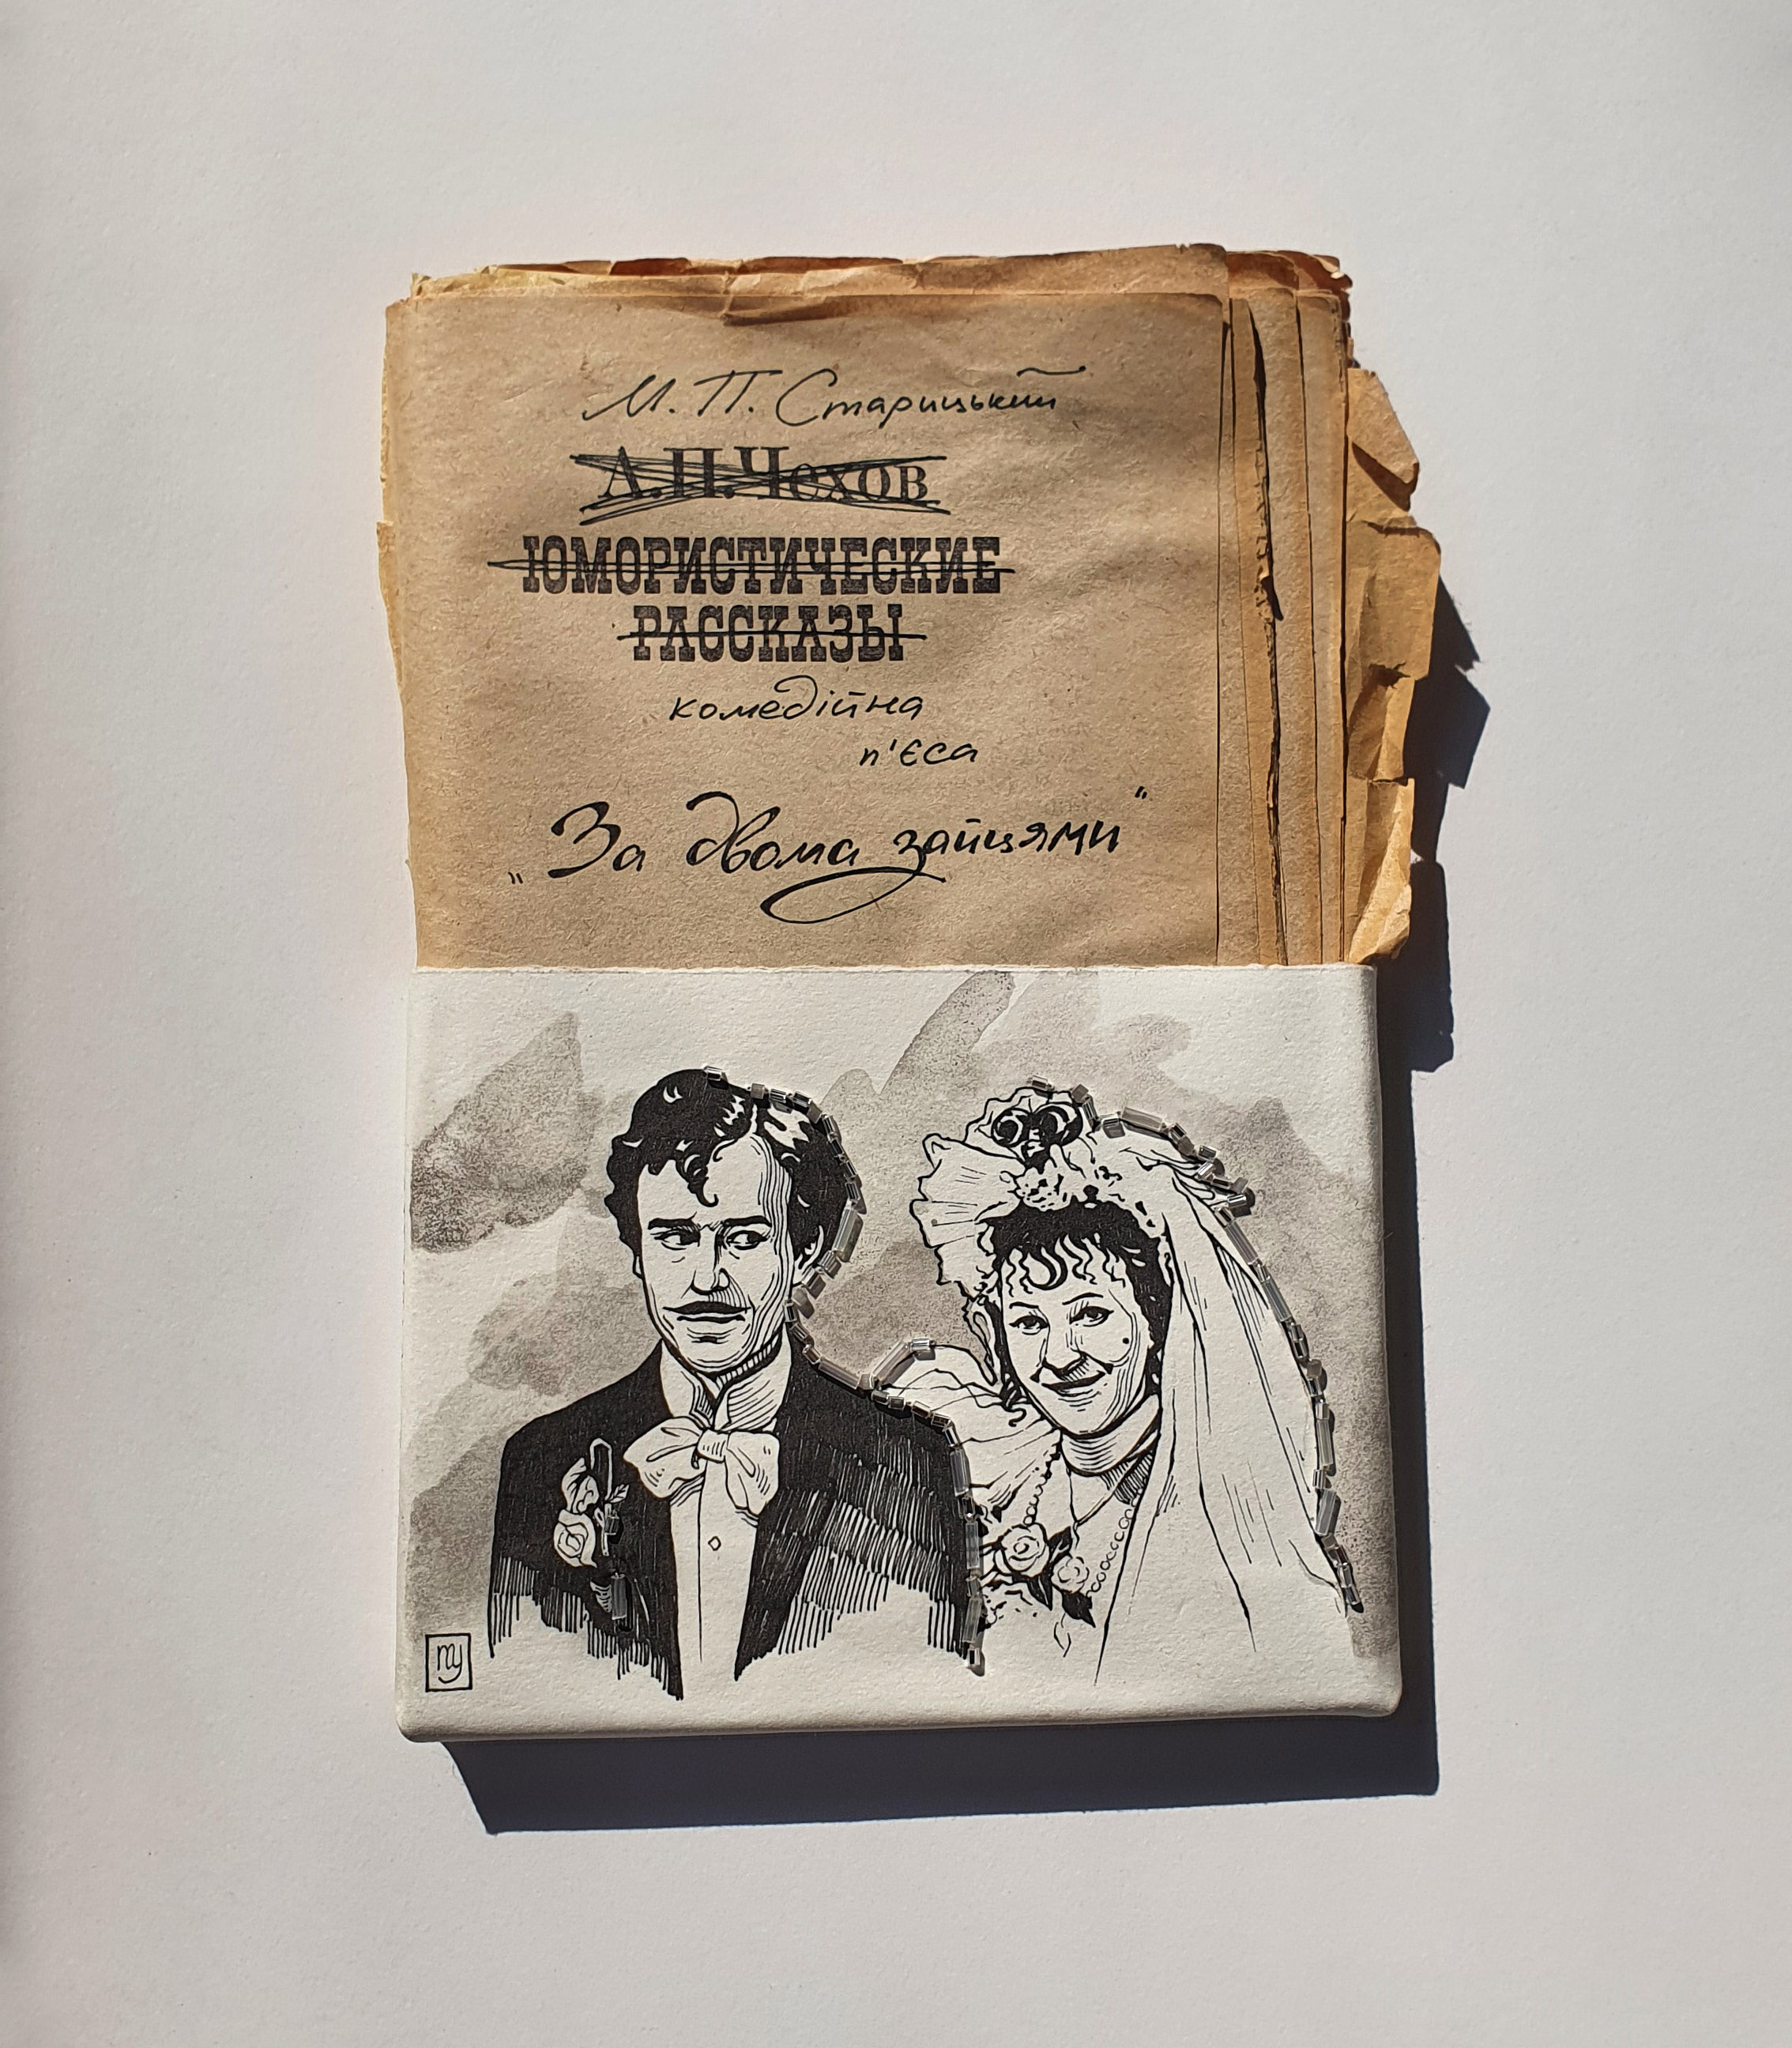 М. П. Старицький
А.П.Чехов
ЮМОРИСТИЧЕСКИЕ
РАССКАЗЫ
комедійна
п'єса
„За двома зайцями“